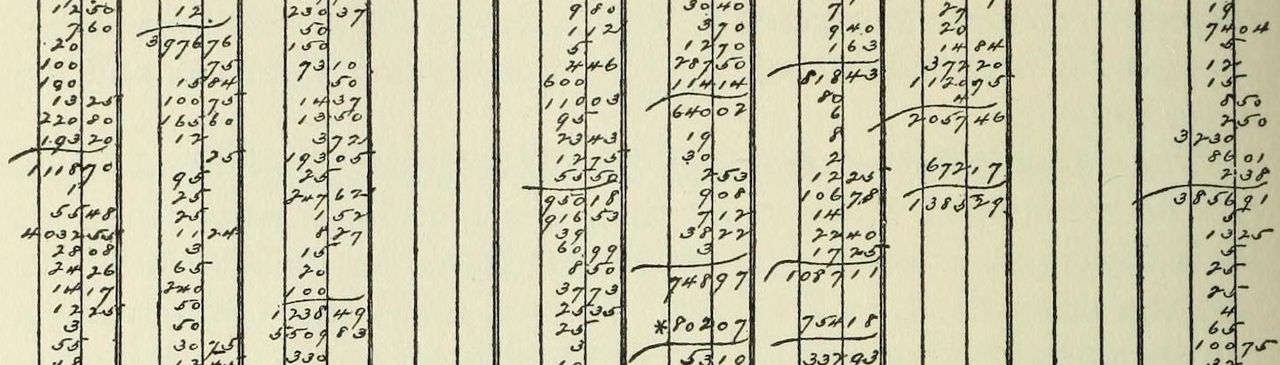 12 50
7 60
20
100
190
13 25
220 80
193 20
1118 70
1
55 48
4032 55
28 08
24 26
14 17
12 25
3
55
18
12
3976 76
75
15 84
100 75
165 60
12
25
95
25
25
11 24
3
65
240
50
50
30 75
230 37
50
150
73 10
50
14 37
13 50
3 72
193 05
25
247 62
1 52
8 27
15
20
100
1238 49
5509 83
330
9 80
1 12
5
4 46
600
110 03
95
23 43
12 75
55 50
950 18
916 53
39
60 99
8 50
37 73
25 35
25
3
30 40
3 70
12 70
287 50
114 14
640 02
19
30
2 53
9 08
7 12
38 22
3
748 97
*802 07
53 10
7
9 40
1 63
818 43
80
6
8
2
12 25
106 78
14
22 40
17 25
1087 11
754 18
337 93
27
20
14 84
372 20
1120 95
4
2057 46
672 17
1385 29
19
74 04
5
12
15
8 50
2 50
3230
86 01
2 38
3856 91
5
13 25
5
25
25
4
65
100 75